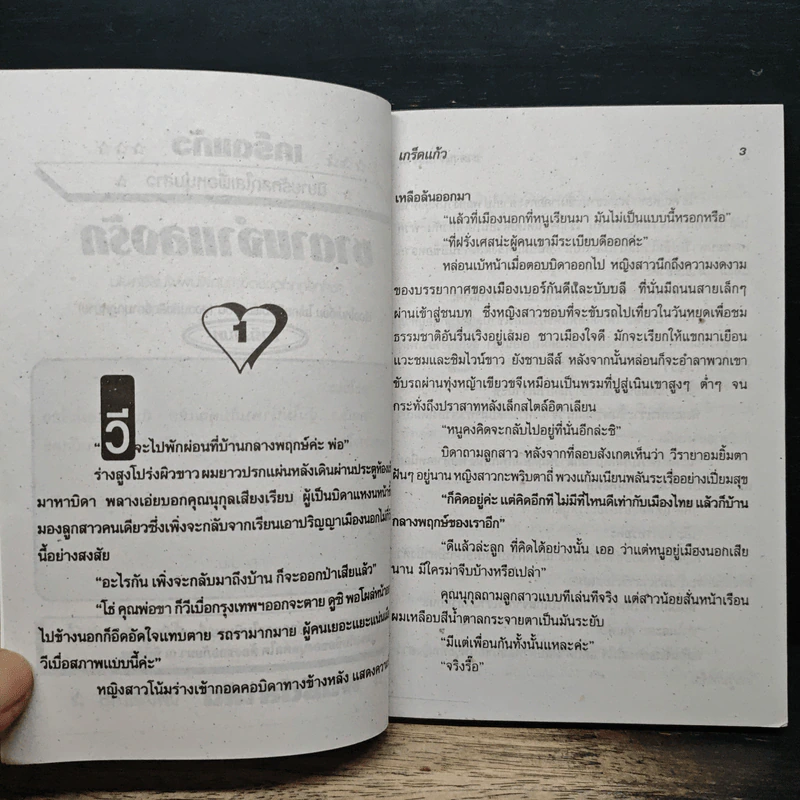 1
“วี จะไปพักผ่อนที่บ้านกลางพฤกษ์ค่ะ พ่อ”
ร่างสูงโปร่งผิวขาว ผมยาวปรกแผ่นหลังเดินผ่านประตูห้อง
มาหาบิดา พลางเอ่ยบอกคุณนุกุลเสียงเรียบ ผู้เป็นบิดาแหงนหน้า
มองลูกสาวคนเดียวซึ่งเพิ่งจะกลับจากเรียนเอาปริญญาเมืองนอก
นี้อย่างสงสัย
“อะไรกัน เพิ่งจะกลับมาถึงบ้าน ก็จะออกป่าเสียแล้ว”
“โธ่ คุณพ่อขา ก็วีเบื่อกรุงเทพฯออกจะตาย ดูซิ พอโผล่หน้า
ไปข้างนอกก็อึดอัดใจแทบตาย รถรามากมาย ผู้คนเยอะแยะแน่น
วีเบื่อสภาพแบบนี้ค่ะ”
หญิงสาวโน้มร่างเข้ากอดคอบิดาทางข้างหลัง แสดงความ
เกร็ดแก้ว 3
เหลือล้นออกมา
“แล้วที่เมืองนอกที่หนูเรียนมา มันไม่เป็นแบบนี้หรอกหรือ”
“ที่ฝรั่งเศสน่ะผู้คนเขามีระเบียบดีออกค่ะ”
หล่อนเบ้หน้าเมื่อตอบบิดาออกไป หญิงสาวนึกถึงความงดงาม
ของบรรยากาศของเมืองเบอร์กันดีและบับบลี ที่นั่นมีถนนสายเล็กๆ
ผ่านเข้าสู่ชนบท ซึ่งหญิงสาวชอบที่จะขับรถไปเที่ยวในวันหยุดเพื่อชม
ธรรมชาติอันรื่นเริงอยู่เสมอ ชาวเมืองใจดี มักจะเรียกให้แขกมาเยือน
แวะชมและชิมไวน์ขาว ยังชาบลีส์ หลังจากนั้นหล่อนก็จะอำลาพวกเขา
ขับรถผ่านทุ่งหญ้าเขียวขจีเหมือนเป็นพรมที่ปูสู่เนินเขาสูงๆ ต่ำๆ จน
กระทั่งถึงปราสาทหลังเล็กสไตล์อิตาเลียน
“หนูคงคิดจะกลับไปอยู่ที่นั่นอีกล่ะซิ”
บิดาถามลูกสาว หลังจากที่ลอบสังเกตเห็นว่า วีรายาอมยิ้มตา
ฝันๆ อยู่นาน หญิงสาวกะพริบตาถี่ พวงแก้มเนียนพลันระเรื่ออย่างเปี่ยมสุข
“ก็คิดอยู่ค่ะ แต่คิดอีกที ไม่มีที่ไหนดีเท่ากับเมืองไทย แล้วก็บ้าน
กลางพฤกษ์ของเราอีก”
“ดีแล้วล่ะลูก ที่คิดได้อย่างนั้น เออ ว่าแต่หนูอยู่เมืองนอกเสีย
นาน มีใครมาจีบบ้างหรือเปล่า”
คุณนุกุลถามลูกสาวแบบทีเล่นทีจริง แต่สาวน้อยสั่นหน้าเรือน
ผมเหลือบสีน้ำตาลกระจายตาเป็นมันระยับ
“มีแต่เพื่อนกันทั้งนั้นแหละค่ะ”
“จริงรื้อ”